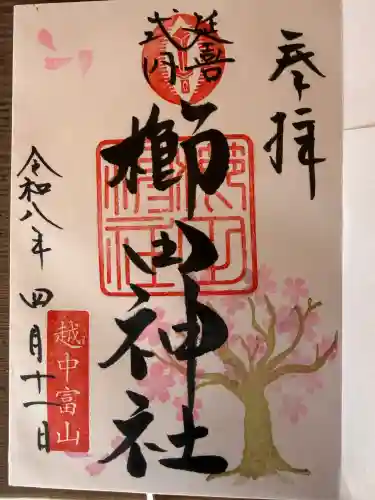 奉拝
延喜
式内
櫛田神社
令和八年四月十一日
越中富山